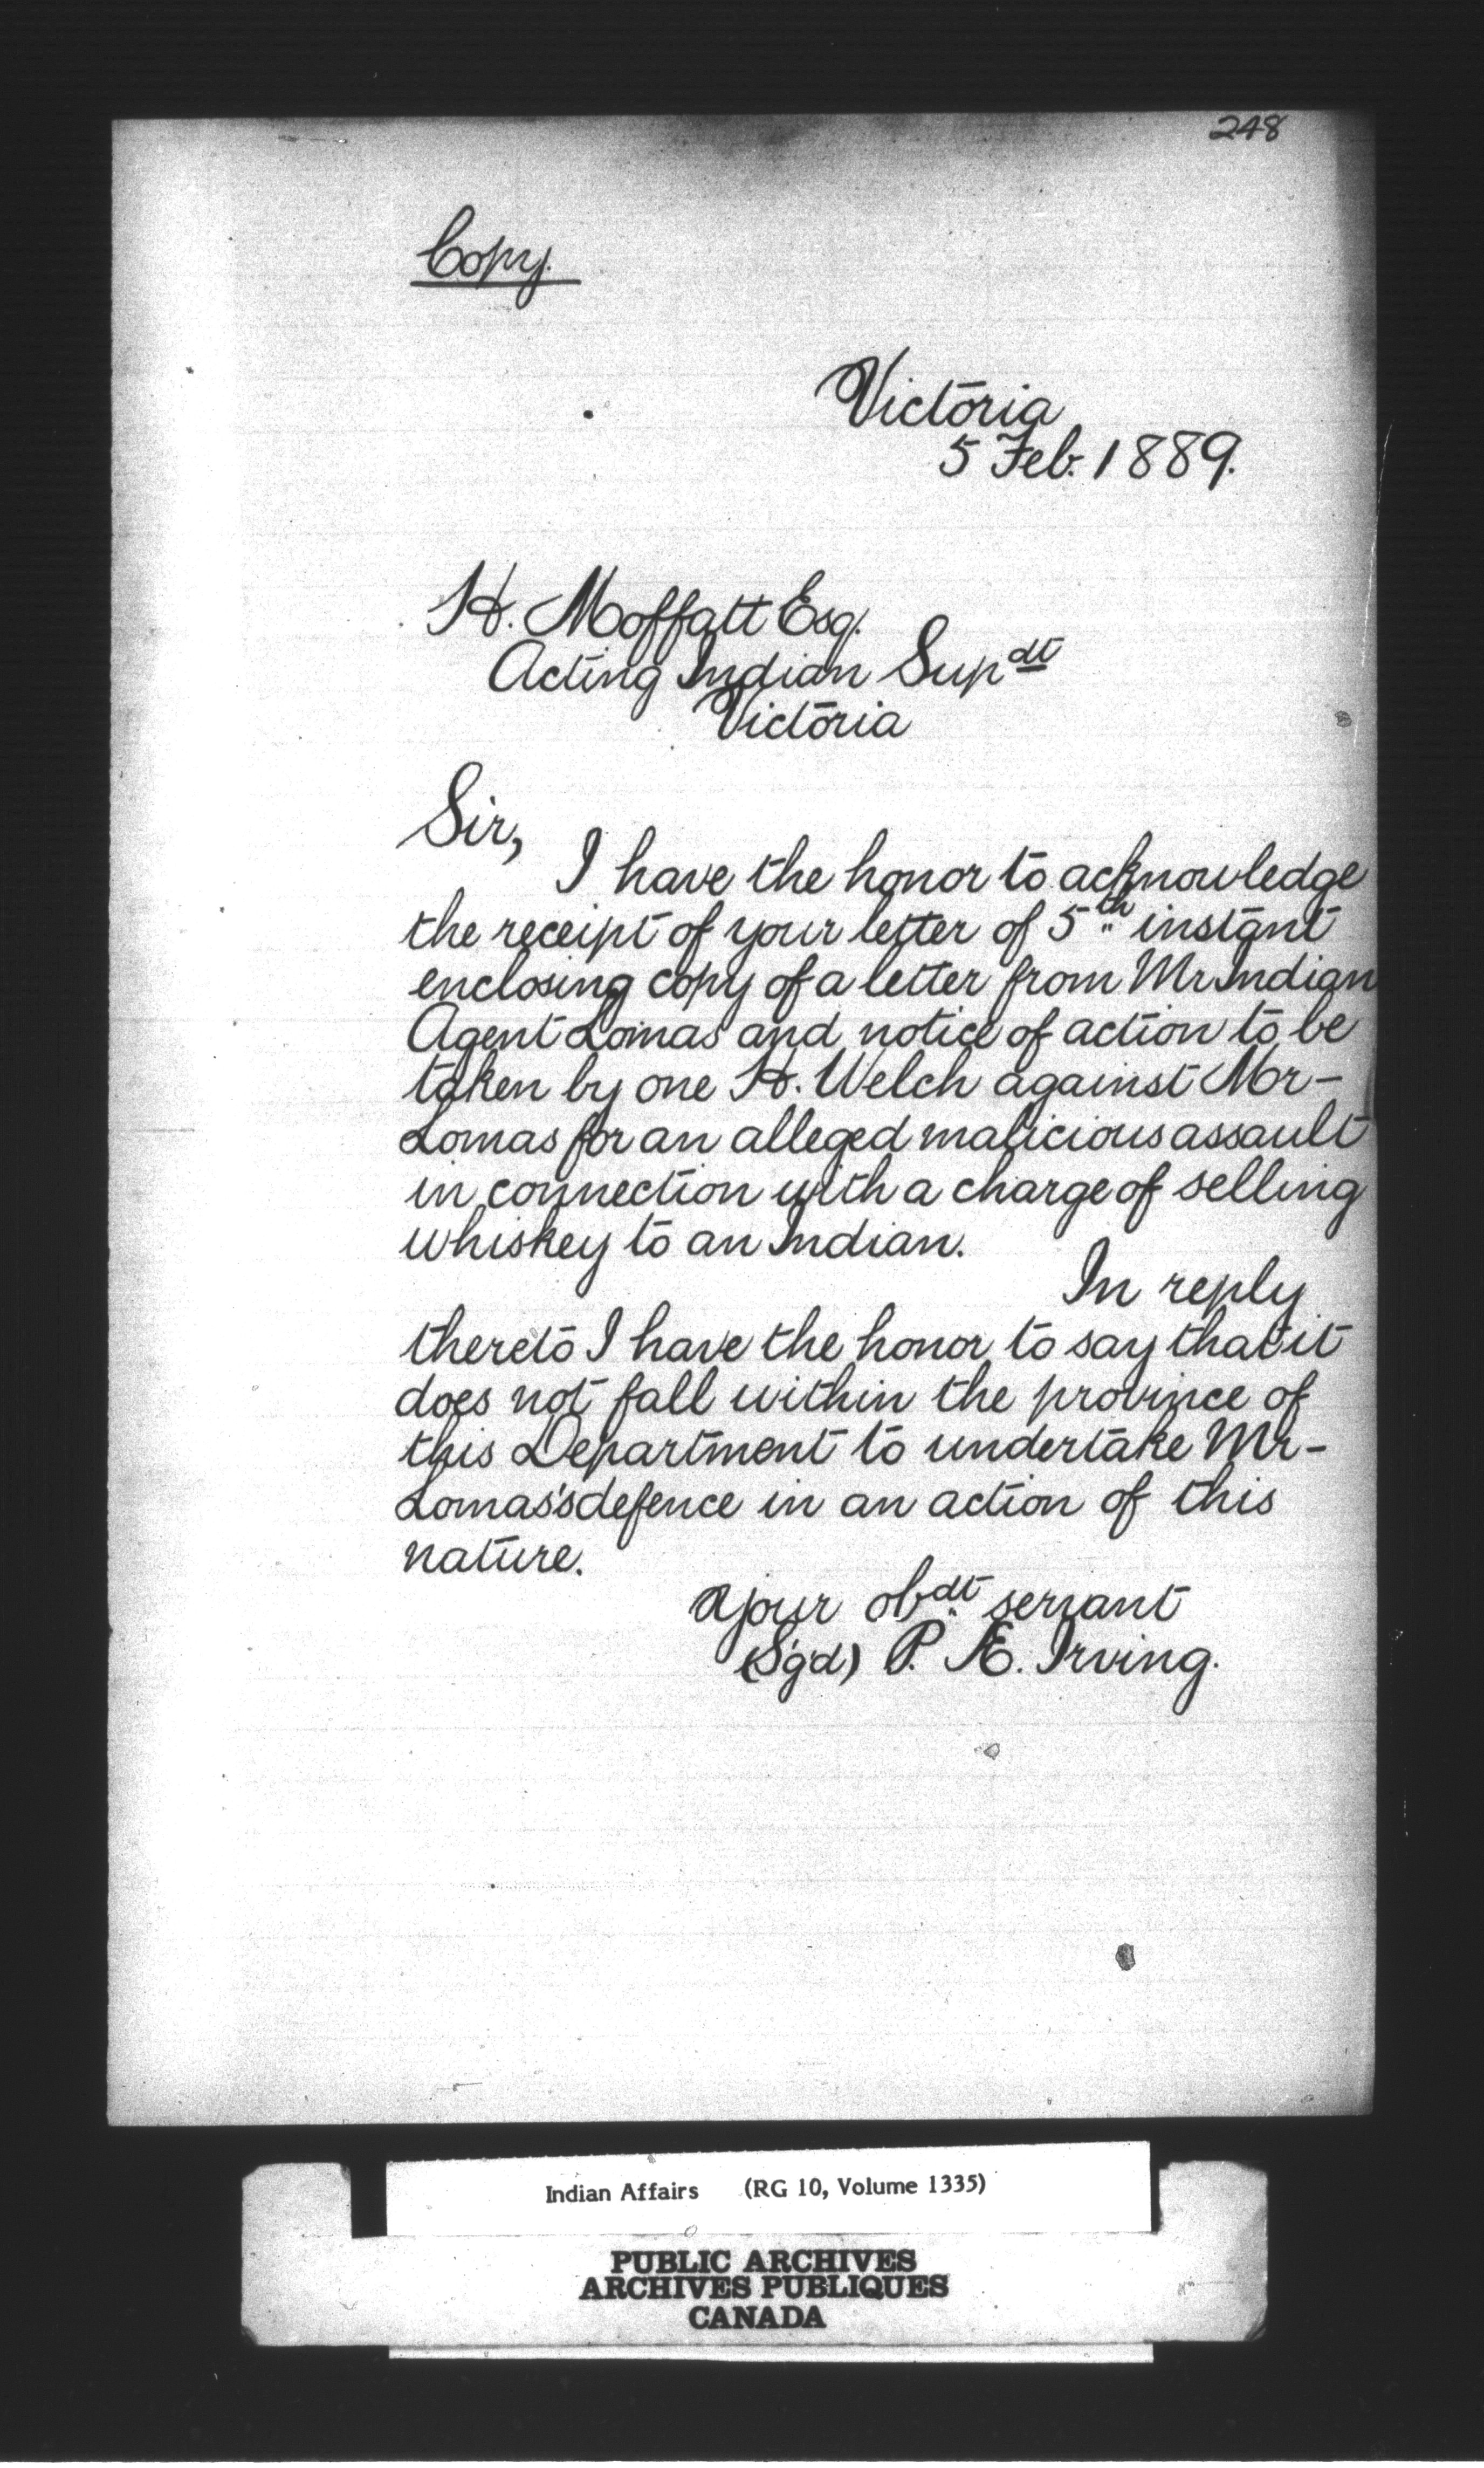 248
Copy.
Victoria
5 Feb. 1889.
H. Moffatt Esq.
Acting Indian Supdt
Victoria
Sir,
I have the honor to acknowledge
the receipt of your letter of 5th instant
enclosing copy of a letter from Mr Indian
Agent Lomas and notice of action to be
taken by one H. Welch against Mr-
Lomas for an alleged malicious assault
in connection with a charge of selling
whiskey to an Indian.
In reply
thereto I have the honor to say that it
does not fall within the province of
this Department to undertake Mr-
Lomas's defence in an action of this
nature.
Your obdt servant
(Sgd) P. Æ. Irving.
Indian Affairs (RG 10, Volume 1335)
PUBLIC ARCHIVES
ARCHIVES PUBLIQUES
CANADA